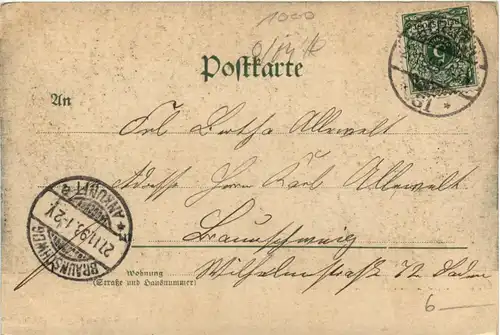 1000
Postkarte
An
Frl. Bertha Allewelt
Adresse Herrn Karl Allewelt
Braunschweig
Wohnung
(Straße und Hausnummer)
Wilhelmstraße 72 Laden
6 —
BRAUNSCHWEIG
* ANKUNFT *
5